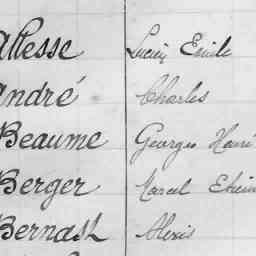 Allesse Lucien Emile
André Charles
Beaume Georges Henri
Berger Marcel Etien
Bernash Alexis